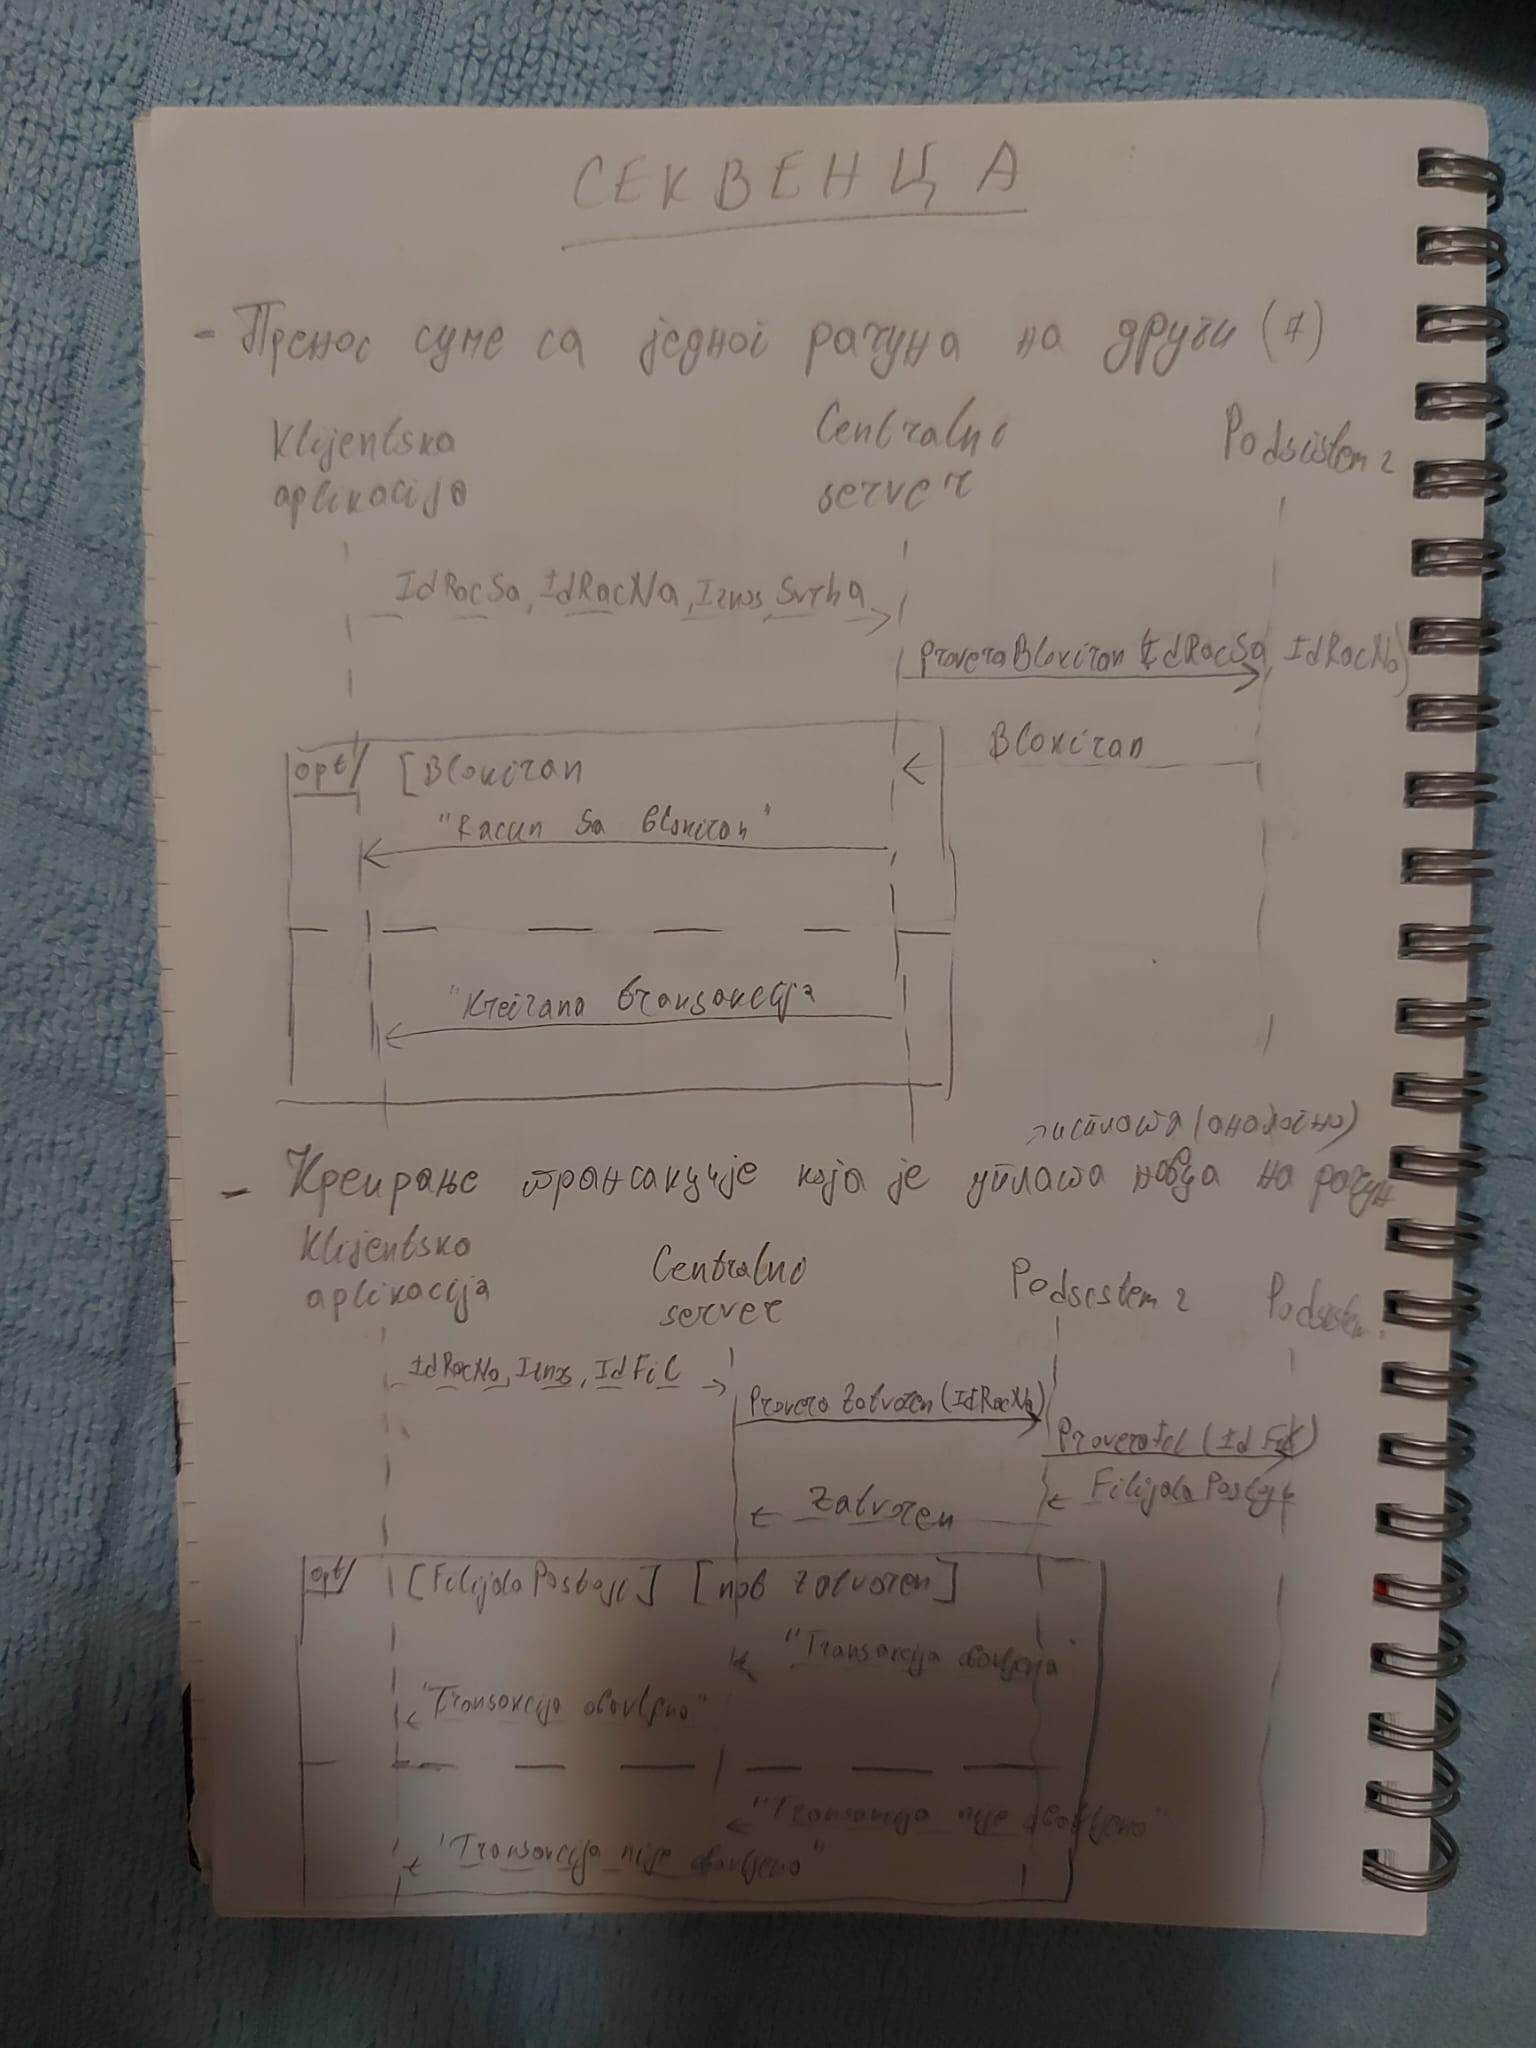 СЕКВЕНЦА
- Пренос суме са једног рачуна на други (7)
Klijentska aplikacija
Centralni server
Podsistem 2
IdRacSa, IdRacNa, Iznos, Svrha
ProveraBlokiran (IdRacSa, IdRacNa)
Blokiran
opt [Blokiran
"Racun Sa blokiran"
"Kreirana transakcija
исплата (аналогно)
- Креирање трансакције која је уплата новца на рачун
Klijentska aplikacija
Centralni server
Podsistem 2
Podsistem
IdRacNa, Iznos, IdFil
Provera Zatvoren (IdRacNa)
ProveraFil (IdFil)
Filijala Postoji
Zatvoren
opt [Filijala Postoji] [not zatvoren]
"Transakcija obavljena"
"Transakcija obavljena"
"Transakcija nije obavljena"
"Transakcija nije obavljena"